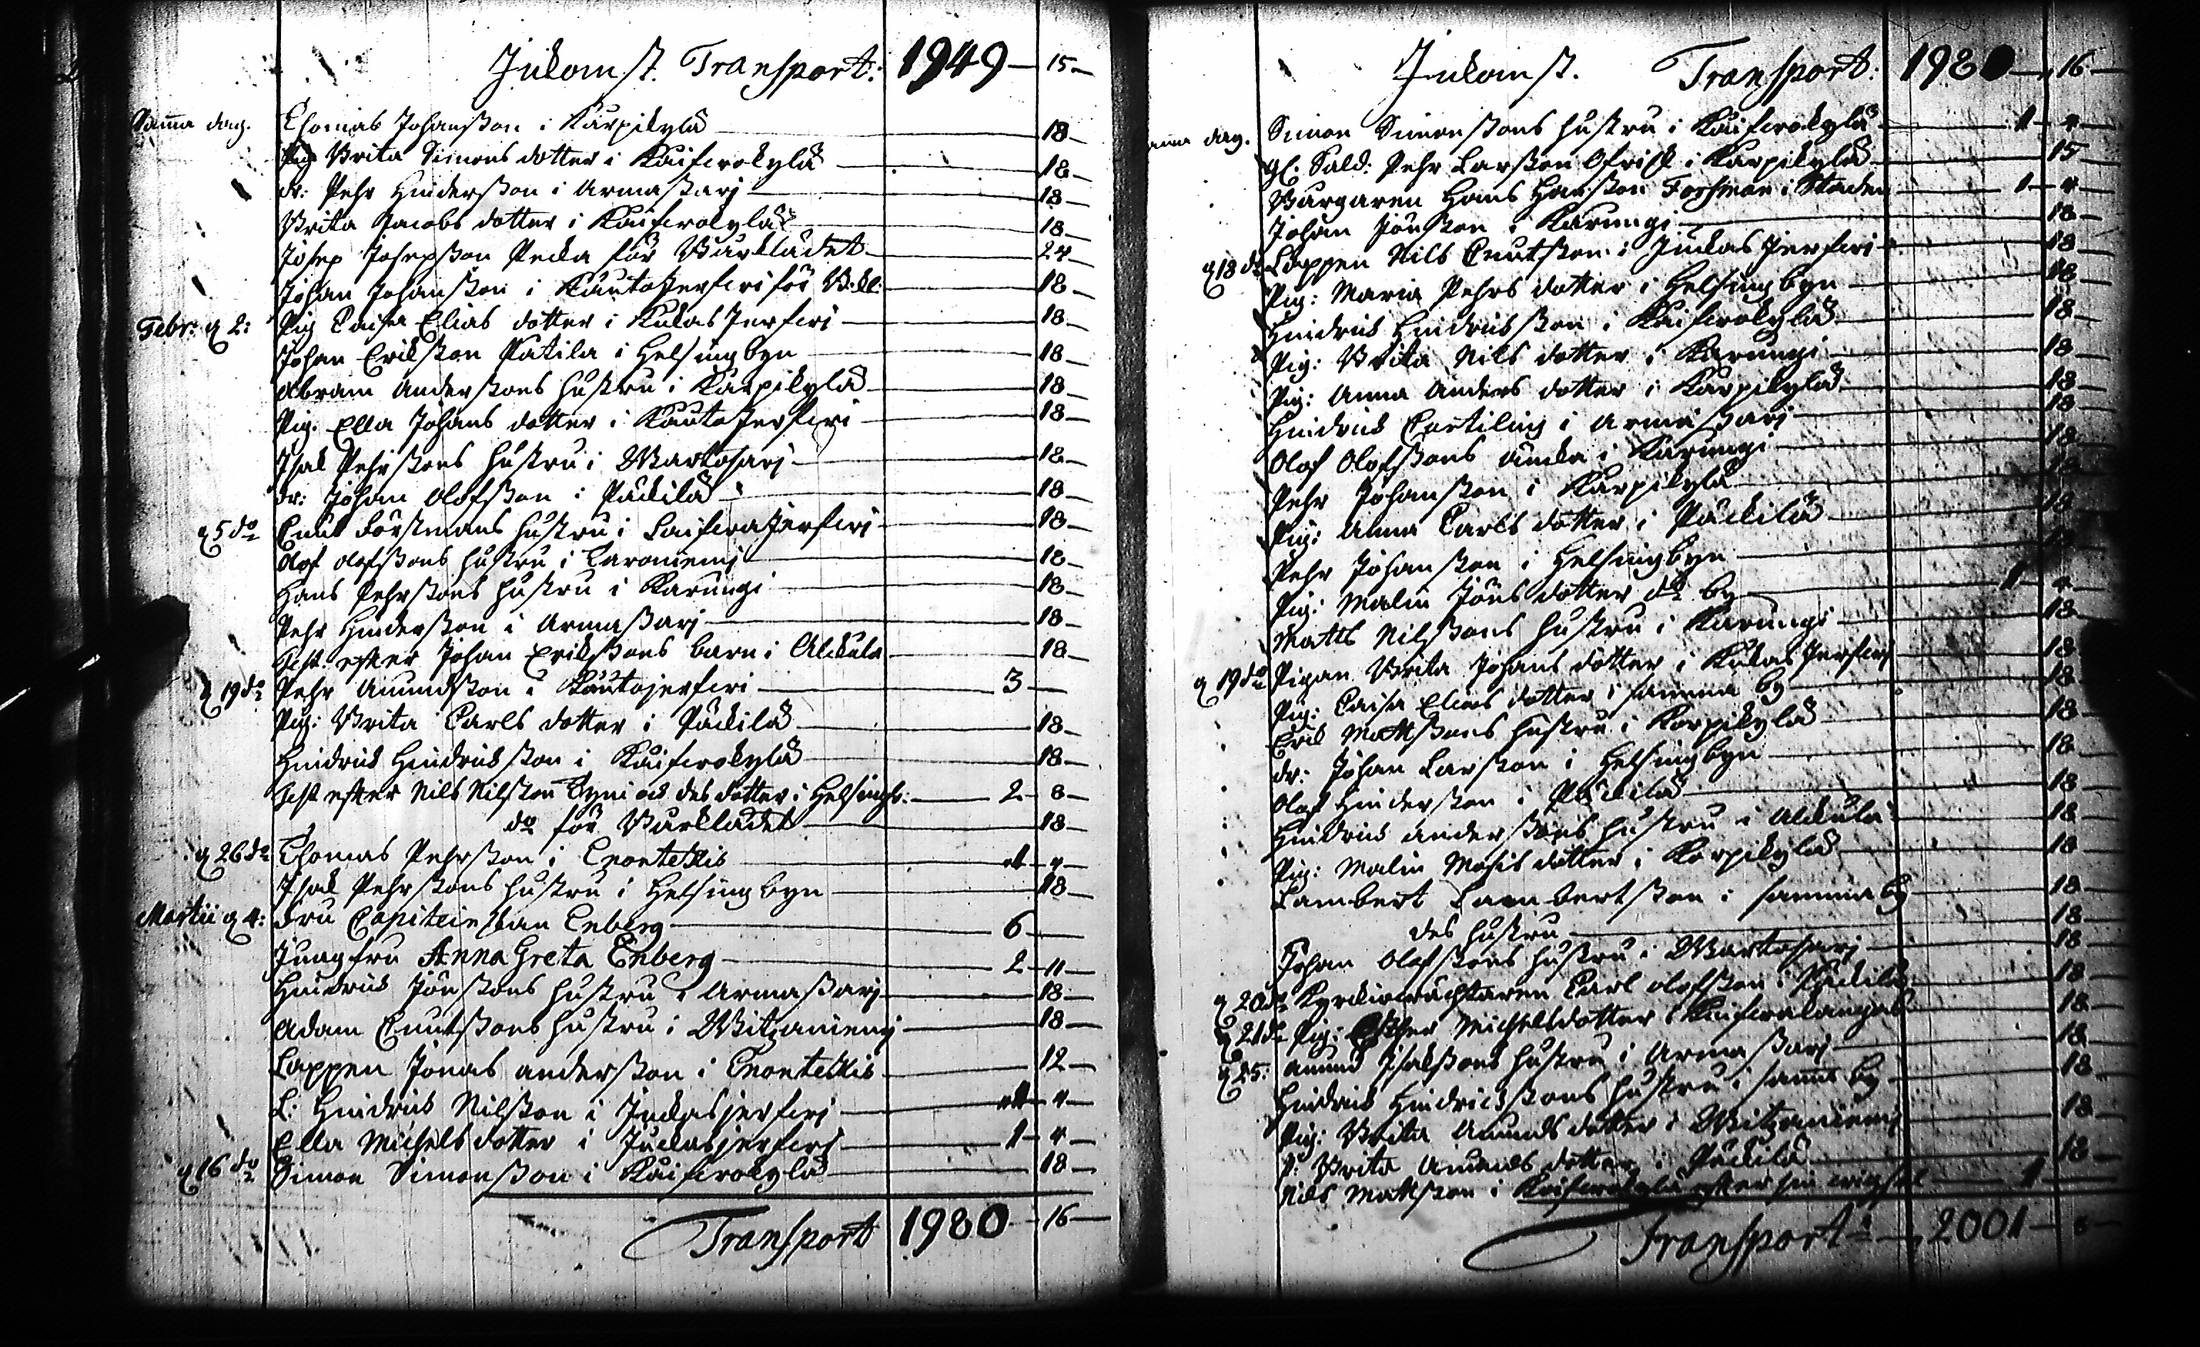 Inkomst. Transport: 1949 — 15 —
Samma dag. Thomas Johansson i Karpikylä — 18 —
Pig. Brita Simons dotter i Kuiferokylä — 18 —
dr: Pehr Hindersson i Armassarj — 18 —
Brita Jacobs dotter i Kuiferokylä — 18 —
Josep Josepsson Pecka för Bårklädet — 24 —
Johan Johansson i Kautojerfwi för B:kl: — 18 —
Febr: d 2: Pig Caisa Elias dotter i Kukasjerfwi — 18 —
Johan Ericksson Patila i Helsingbyn — 18 —
Abram Anderssons hustru i Karpikylä — 18 —
Pig. Ella Johans dotter i Kautojerfwi — 18 —
Isak Pehrssons hustru i Martosarj — 18 —
dr: Johan Olofsson i Päckilä — 18 —
d 5 do Cnut Förstmans hustru i — 18 —
Olof Olofssons hustru i Laroniemi — 18 —
Hans Pehrssons hustru i Karungi — 18 —
Pehr Hindersson i Armassarj — 18 —
Test efter Johan Erikssons barn i Alckula — 18 —
d 19 do Pehr Amundsson i Kautojerfwi — 3 —
Pig: Brita Carls dotter i Päckilä — 18 —
Hindrick Hindricksson i Kuiferokylä — 18 —
Test efter Nils Nilsson och des dotter i Helsingb: — 2 — 8 —
do för Bårklädet — 18 —
d 26 do Thomas Pehrsson i Enontekis — 1 — 4 —
Isak Pehrssons hustru i Helsingbyn — 18 —
Martii d 4: Fru Capiteinskan Enberg — 6 —
Jungfru Anna Greta Enberg — 2 — 11 —
Hindrick Jönssons hustru i Armassarj — 18 —
Adam Cnutssons hustru i Witzaniemi — 18 —
Lappen Jonas Andersson i Enontekis — 12 —
L: Hindrick Nilsson i Juckasjerfwi — 4 —
Ella Michels dotter i Juckasjerfwi — 1 — 4 —
d 16 do Simon Simonsson i Kuiferokylä — 18 —
Transport 1980 — 16 —
Inkomst. Transport: 1980 — 16 —
dag. Simon Simonssons hustru i Kuiferokylä — 1 — 4 —
gl: Sold: Pehr Larsson Ofrisk i Karpikylä — 15
Borgaren Hans Hansson Forsman i Staden — 1 — 4 —
Johan Jönsson i Karungi — 18 —
d 18 do Lappen Nils Cnutsson i Juckasjerfwi — 18 —
Pig: Maria Pehrs dotter i Helsingbyn — 18 —
Hindrick Hindricksson i Kuiferokylä — 18 —
Pig: Brita Nils dotter i Karungi — 18 —
Pig: Anna Anders dotter i Karpikylä — 18 —
Hindrick i Armassarj — 18 —
Olof Olofssons änka i Karungi — 18 —
Pehr Johansson i Karpikylä — 18
Pig: Anna Carls dotter i Päckilä — 18
Pehr Johansson i Helsingbyn
Pig: Malin Jöns dotter do by — 1 — 4 —
Matts Nilssons hustru i Karungi — 18 —
d 19 do Pigan Brita Johans dotter i Kukasjerfwi — 18
Pig: Caisa Elias dotter i samma by — 18
Erik Mattssons hustru i Korpikylä — 18 —
dr: Johan Larsson i Helsingbyn — 18 —
Olof Hindersson i Päckilä — 18 —
Hindrick Anderssons hustru i Alckula — 18 —
Pig: Malin Mosis dotter i Korpikylä — 18 —
Lambert Lambertsson i samma by — 18 —
des hustru — 18 —
Johan Olofssons hustru i Martosarj — 18 —
d 20 do Kyrckiowächtaren Carl Olofsson i Päckilä — 18 —
d 21 do Pig: Michelsdotter i — 18 —
d 25: Amund Isakssons hustru i Armassarj — 18 —
Hindrick Hindrickssons hustru i samma by — 18 —
Pig: Brita Amunds dotter i Witzaniemi — 18 —
P: Brita Amunds dotter i Päckilä — 18 —
Nils Mattsson i — 1 —
Transport — 2001 — 8 —